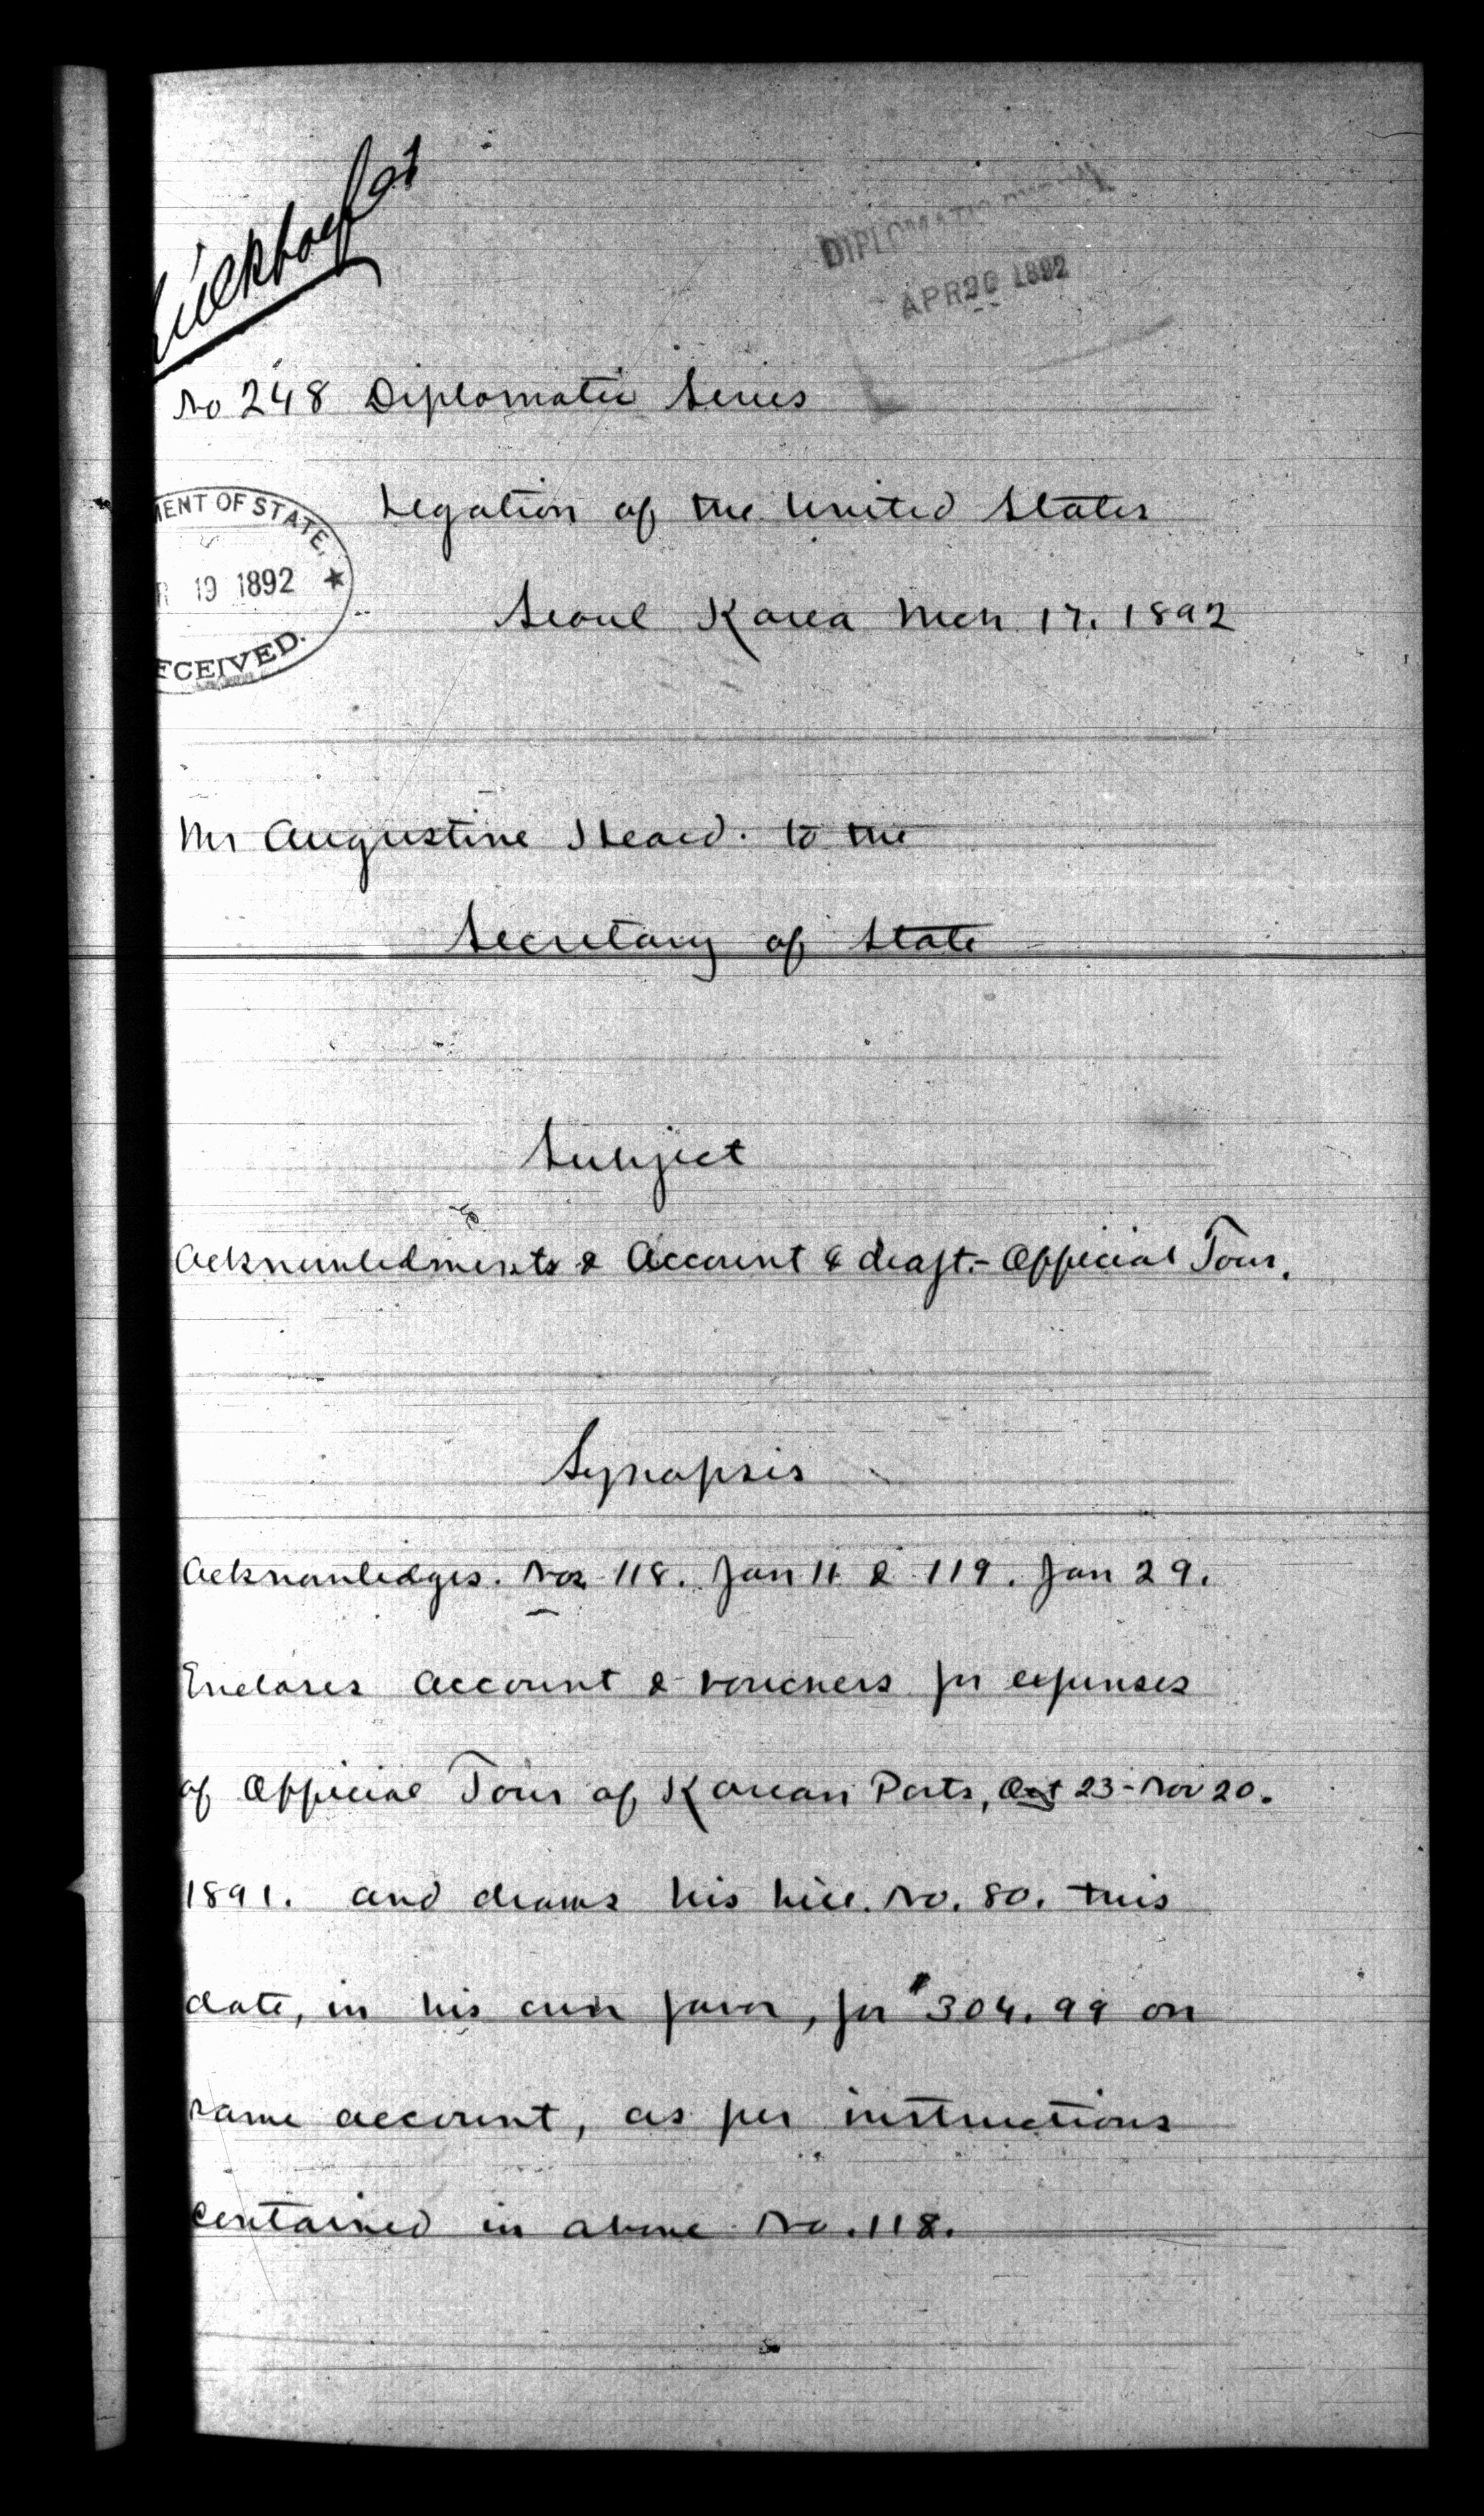 DIPLOMATIC
APR 20 1892
No 248 Diplomatic Series
MENT OF STATE,
R 19 1892
ECEIVED.
Legation of the United States
Seoul Korea Mch 17. 1892
Mr Augustine Heard. to the
Secretary of State
Subject
Acknowledments & Account & draft.- Official Tour.
Synopsis
Acknowledges. Nos 118. Jan 11 & 119. Jan 29.
Encloses account & vouchers for expenses
of Official Tour of Korean Ports, Oct 23 - Nov 20.
1891. and draws his bill. No. 80. this
date, in his own favor, for $304.99 on
same account, as per instructions
contained in above No. 118.